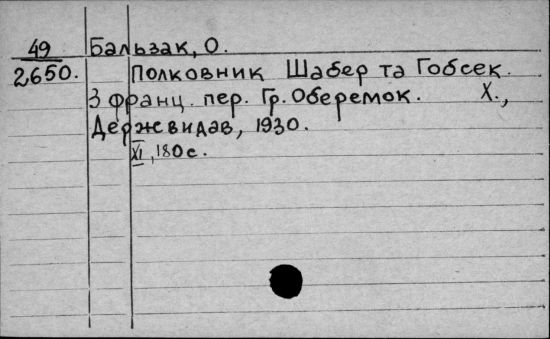 49 Бальзак, О.
2650. Полковник Шабер та Гобсек.
З франц. пер. Гр. Оберемок. Х.,
Держвидав, 1930.
XI, 180 с.